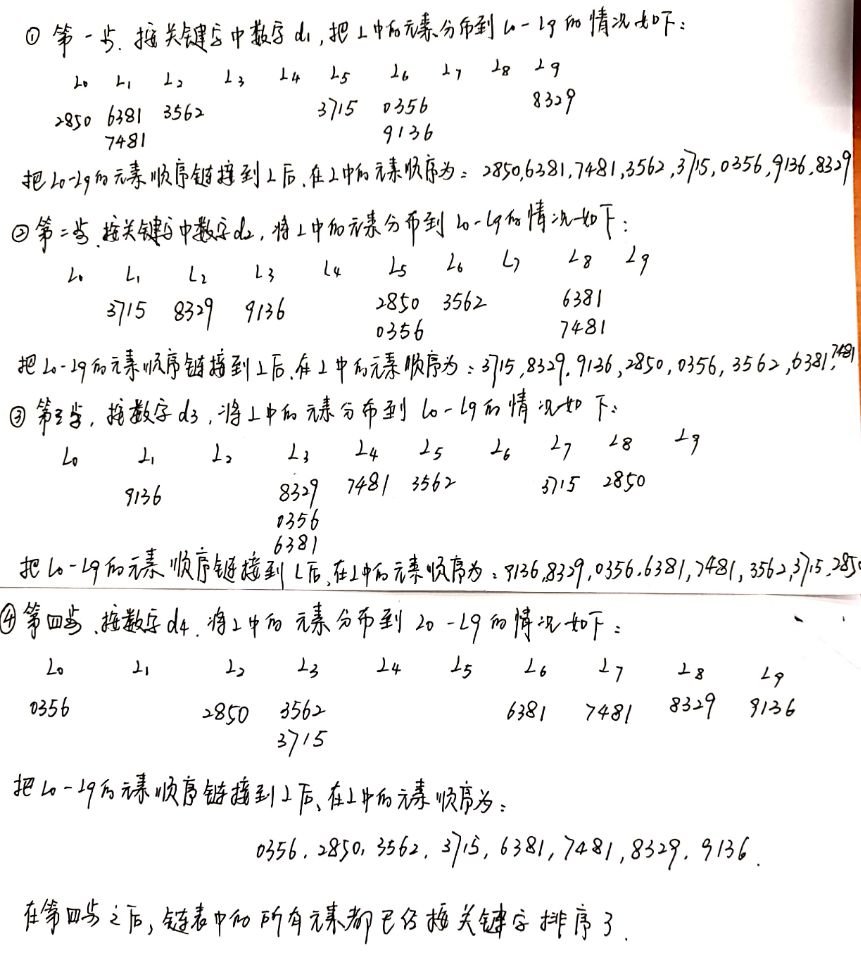 ① 第一步. 按关键字中数字d1,把L中的元素分布到L0-L9的情况如下:
L0 L1 L2 L3 L4 L5 L6 L7 L8 L9
2850 6381 3562 3715 0356 8329
7481 9136
把L0-L9的元素顺序链接到L后,在L中的元素顺序为:2850,6381,7481,3562,3715,0356,9136,8329
② 第二步、按关键字中数字d2,将L中的元素分布到L0-L9的情况如下:
L0 L1 L2 L3 L4 L5 L6 L7 L8 L9
3715 8329 9136 2850 3562 6381
0356 7481
把L0-L9的元素顺序链接到L后、在L中的元素顺序为:3715,8329,9136,2850,0356,3562,6381,7481
③ 第3步,按数字d3,将L中的元素分布到L0-L9的情况如下:
L0 L1 L2 L3 L4 L5 L6 L7 L8 L9
9136 8329 7481 3562 3715 2850
0356
6381
把L0-L9的元素顺序链接到L后,在L中的元素顺序为:9136,8329,0356,6381,7481,3562,3715,2850
④ 第四步、按数字d4.将L中的元素分布到L0-L9的情况如下:
L0 L1 L2 L3 L4 L5 L6 L7 L8 L9
0356 2850 3562 6381 7481 8329 9136
3715
把L0-L9的元素顺序链接到L后、在L中的元素顺序为:
0356,2850,3562,3715,6381,7481,8329,9136.
在第四步之后,链表中的所有元素都已经按关键字排序了.